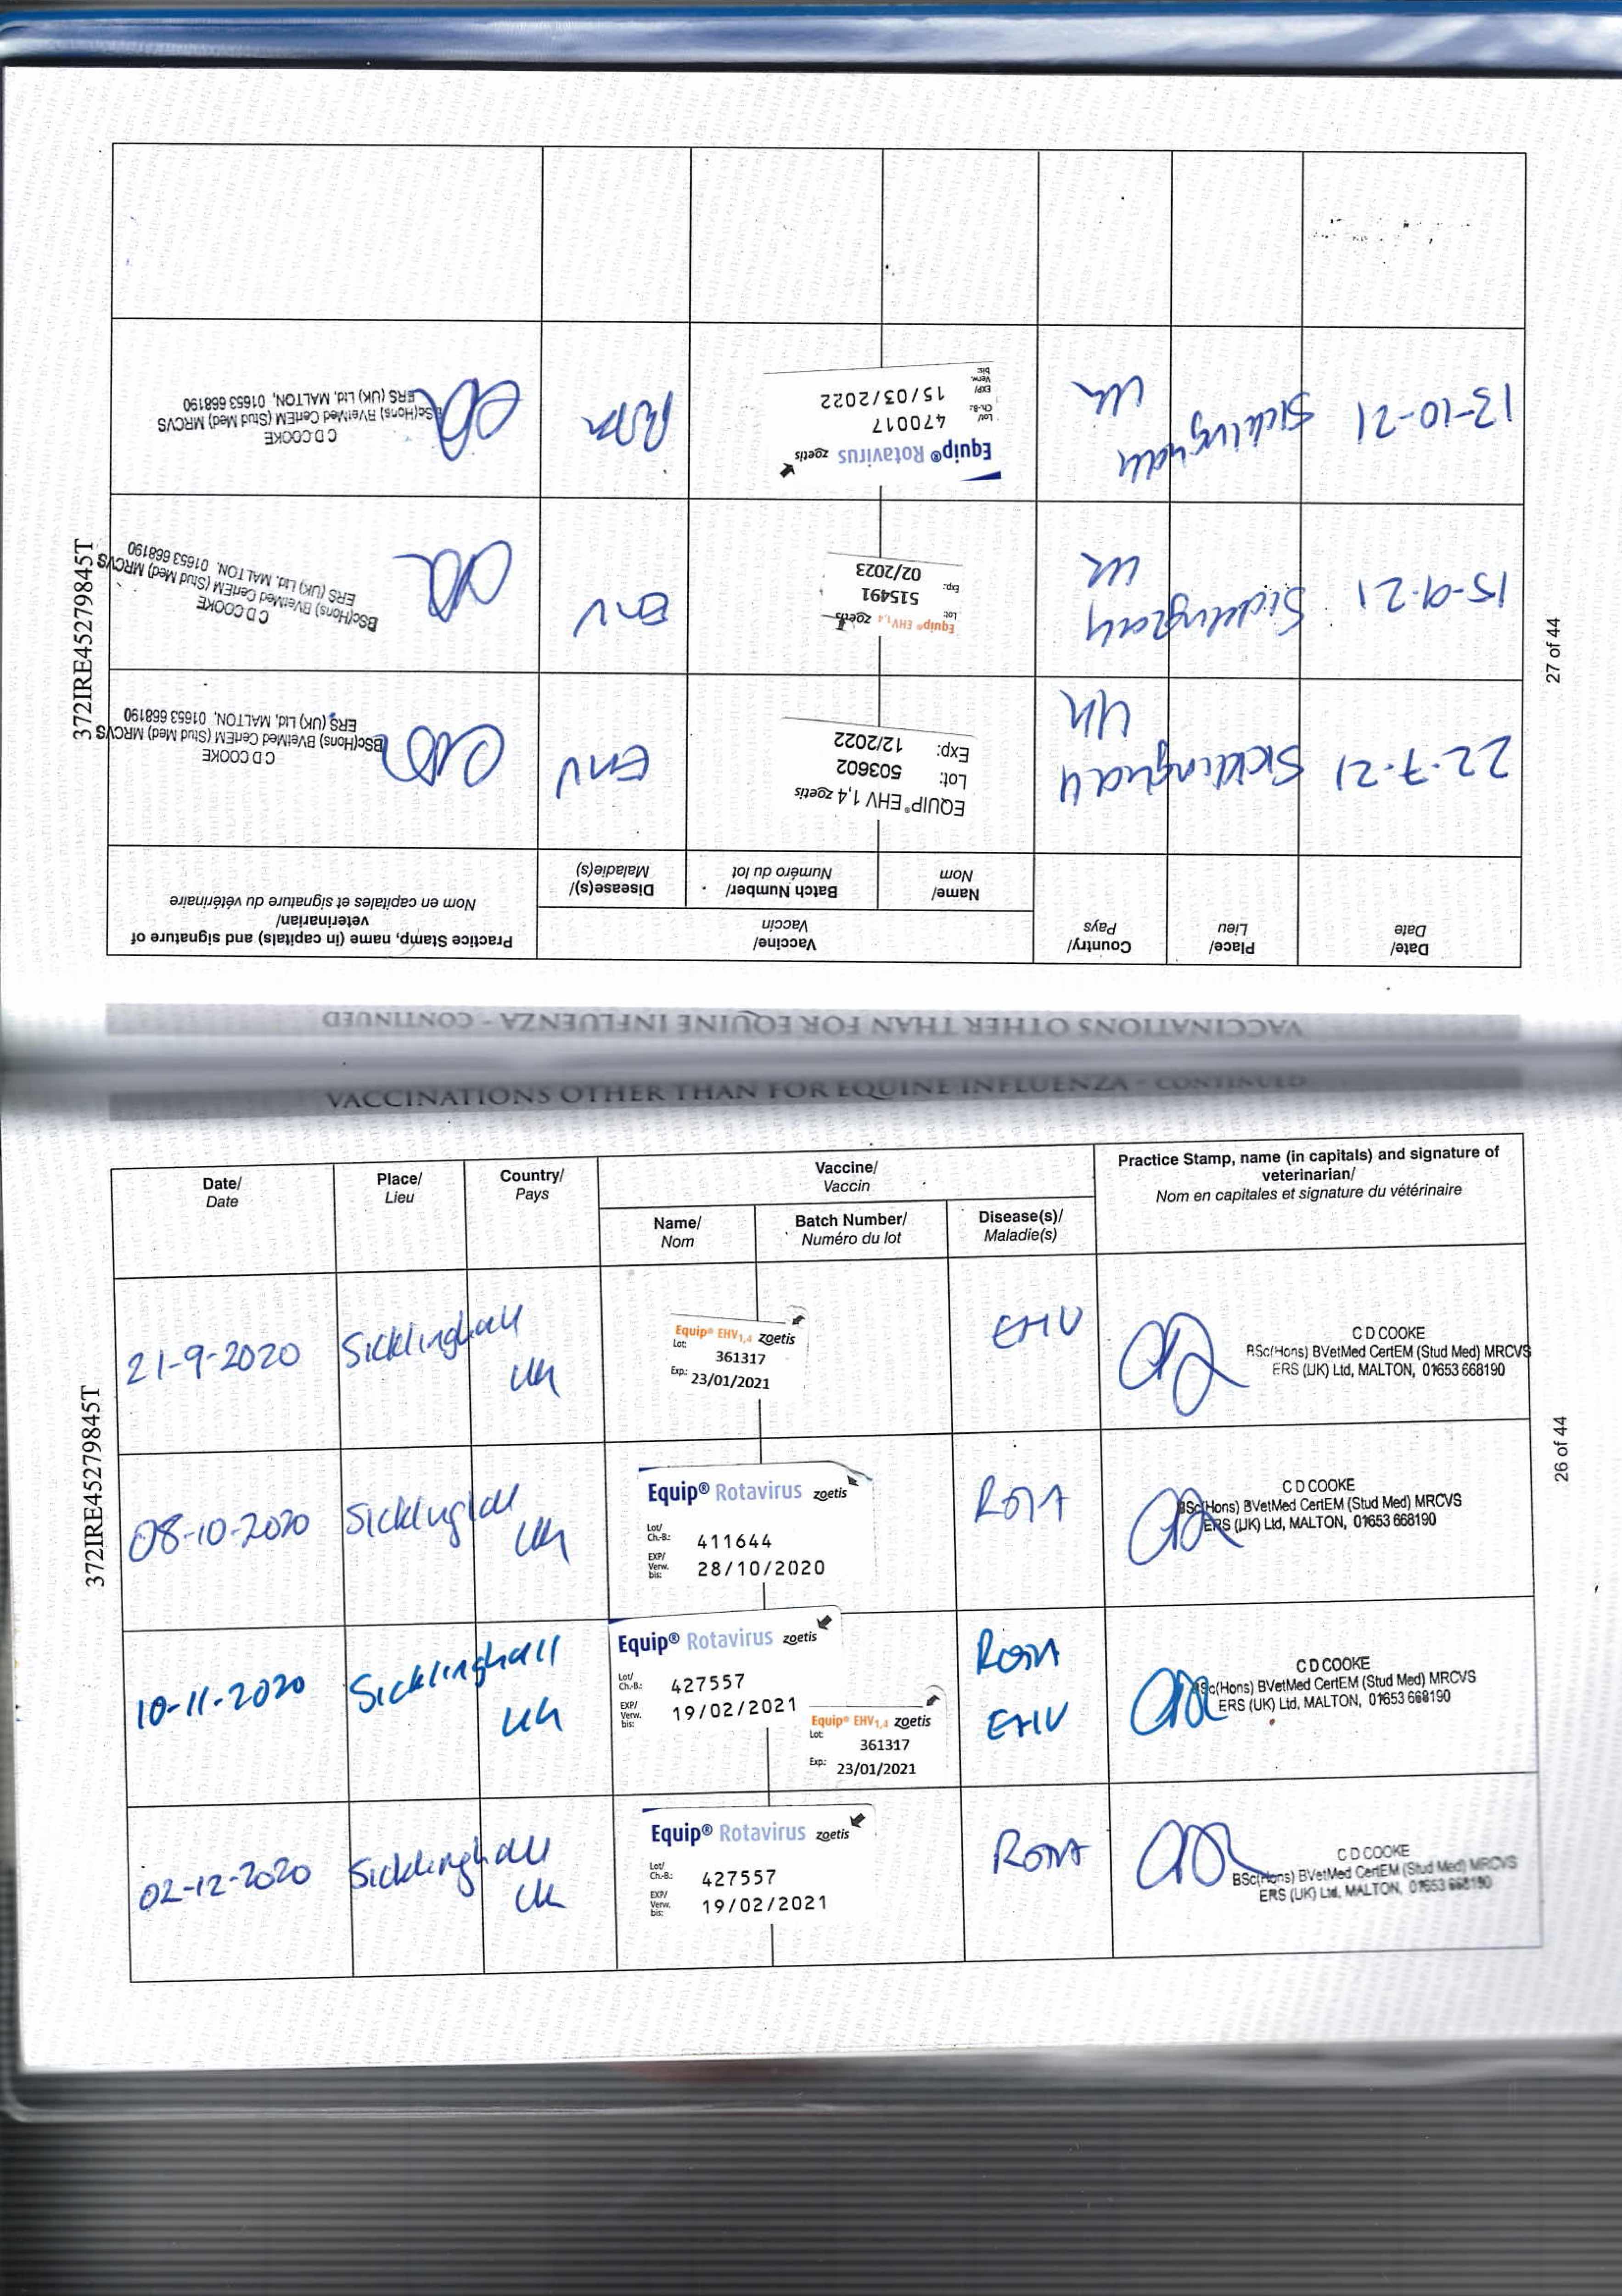 VACCINATIONS OTHER THAN FOR EQUINE INFLUENZA - CONTINUED
Date/
Date
Place/
Lieu
Country/
Pays
Vaccine/
Vaccin
Name/
Nom
Batch Number/
Numéro du lot
Disease(s)/
Maladie(s)
Practice Stamp, name (in capitals) and signature of
veterinarian/
Nom en capitales et signature du vétérinaire
21-9-2020
Sicklinghall
UK
Equip® EHV1,4 zoetis
Lot: 361317
Exp.: 23/01/2021
EHV
C D COOKE
BSc(Hons) BVetMed CertEM (Stud Med) MRCVS
ERS (UK) Ltd, MALTON, 01653 668190
08-10-2020
Sicklinghall
UK
Equip® Rotavirus zoetis
Lot/
Ch.-B.: 411644
EXP/
Verw.
bis: 28/10/2020
ROTA
C D COOKE
BSc(Hons) BVetMed CertEM (Stud Med) MRCVS
ERS (UK) Ltd, MALTON, 01653 668190
10-11-2020
Sicklinghall
UK
Equip® Rotavirus zoetis
Lot/
Ch.-B.: 427557
EXP/
Verw.
bis: 19/02/2021
Equip® EHV1,4 zoetis
Lot: 361317
Exp.: 23/01/2021
ROTA
EHV
C D COOKE
BSc(Hons) BVetMed CertEM (Stud Med) MRCVS
ERS (UK) Ltd, MALTON, 01653 668190
02-12-2020
Sicklinghall
UK
Equip® Rotavirus zoetis
Lot/
Ch.-B.: 427557
EXP/
Verw.
bis: 19/02/2021
ROTA
C D COOKE
BSc(Hons) BVetMed CertEM (Stud Med) MRCVS
ERS (UK) Ltd, MALTON, 01653 668190
372IRE45279845T
26 of 44
VACCINATIONS OTHER THAN FOR EQUINE INFLUENZA - CONTINUED
Date/
Date
Place/
Lieu
Country/
Pays
Vaccine/
Vaccin
Name/
Nom
Batch Number/
Numéro du lot
Disease(s)/
Maladie(s)
Practice Stamp, name (in capitals) and signature of
veterinarian/
Nom en capitales et signature du vétérinaire
22-7-21
Sicklinghall
UK
EQUIP® EHV 1,4 zoetis
Lot: 503602
Exp: 12/2022
EHV
C D COOKE
BSc(Hons) BVetMed CertEM (Stud Med) MRCVS
ERS (UK) Ltd, MALTON, 01653 668190
15-9-21
Sicklinghall
UK
Equip® EHV1,4 zoetis
Lot: 515491
Exp: 02/2023
EHV
C D COOKE
BSc(Hons) BVetMed CertEM (Stud Med) MRCVS
ERS (UK) Ltd, MALTON, 01653 668190
13-10-21
Sicklinghall
UK
Equip® Rotavirus zoetis
Lot/
Ch.-B.: 470017
EXP/
Verw.
bis: 15/03/2022
ROTA
C D COOKE
BSc(Hons) BVetMed CertEM (Stud Med) MRCVS
ERS (UK) Ltd, MALTON, 01653 668190
372IRE45279845T
27 of 44